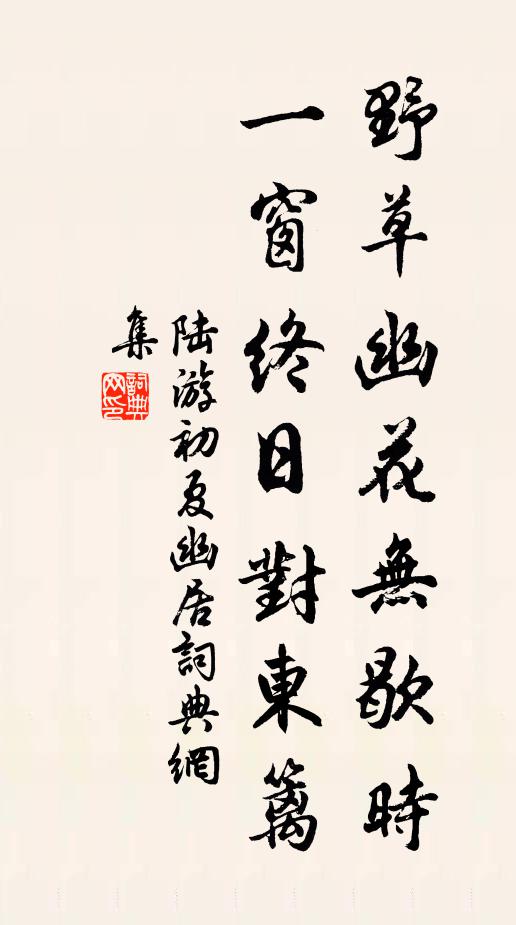 野草幽花無歇時
一窗終日對東籬
陸游初夏幽居詞典網
集
詞典
网印